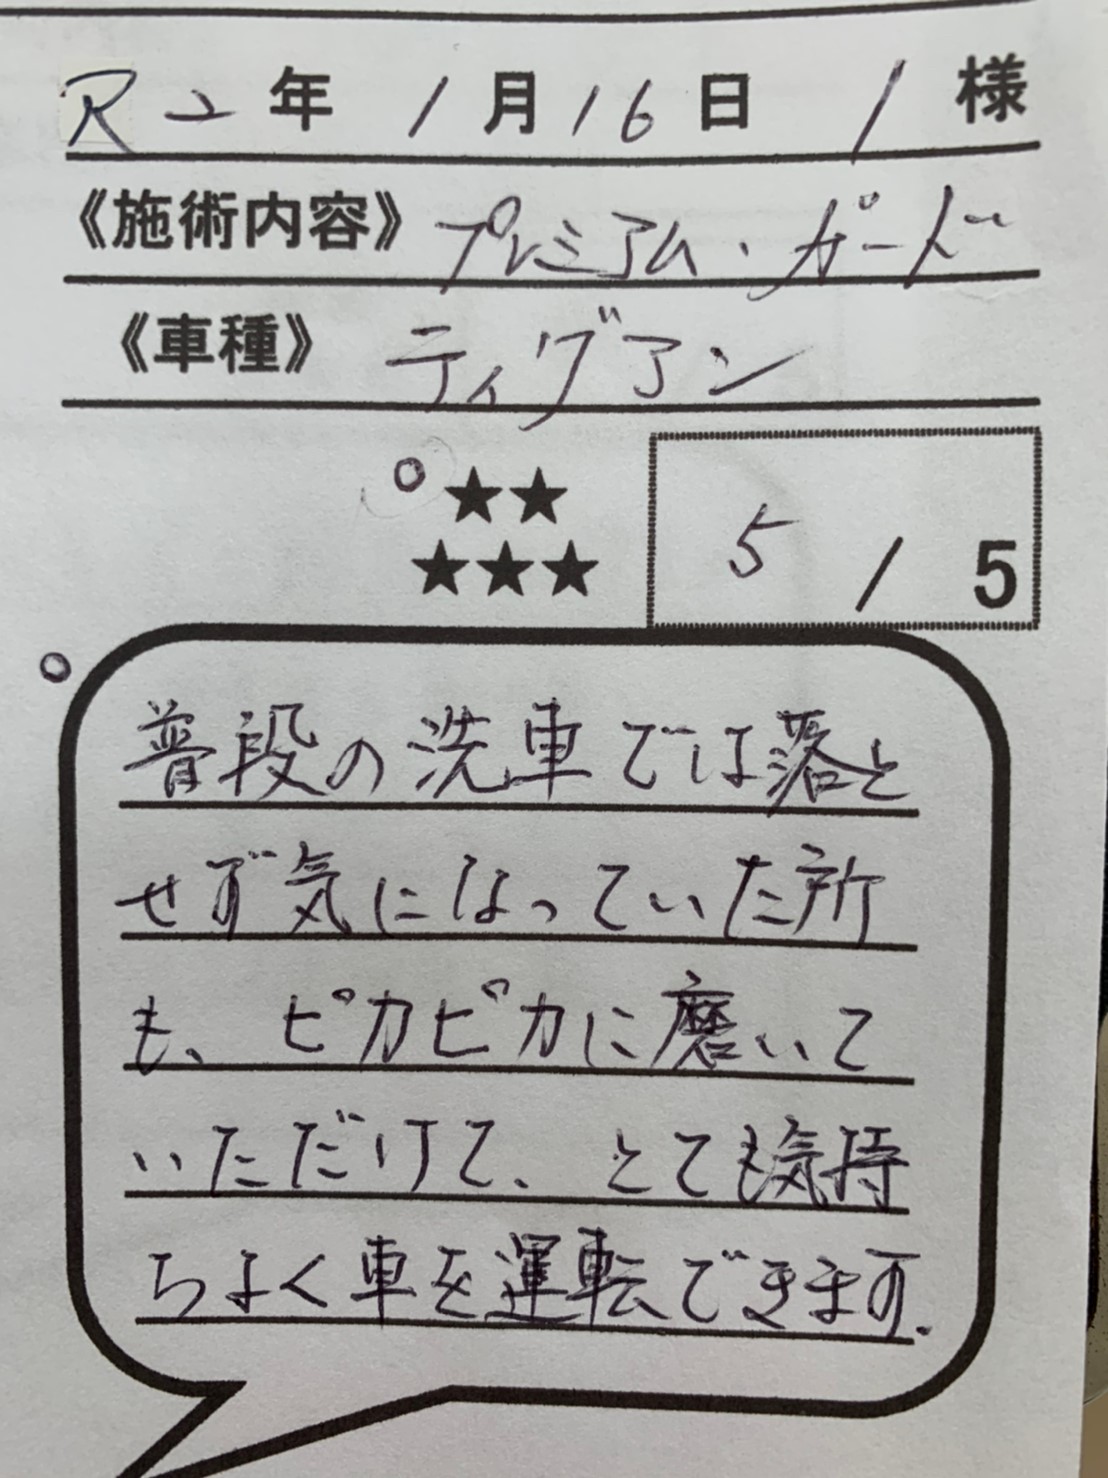 R2年 1月16日 / 様
《施術内容》 プレミアム・ガード
《車種》 ティグアン
★★
★★★
5 / 5
普段の洗車では落と
せず気になっていた所
も、ピカピカに磨いて
いただけて、とても気持
ちよく車を運転できます.